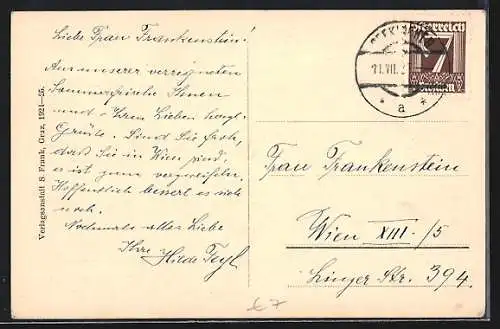 Liebe Frau Frankenstein!
Aus unserer verregneten
Sommerfrische Ihnen
und Ihren Lieben herzl.
Grüße. Sind Sie froh,
daß Sie in Wien sind,
es ist zum verzweifeln.
Hoffentlich bessert es sich
noch.
Nochmals alles Liebe
Ihre Hilde
Verlagsanstalt S. Frank, Graz, 1924—25.
Österreich
7
Groschen
11.VII.2
* a *
Frau Frankenstein
Wien XIII./5
Linzer Str. 394.
€ 7